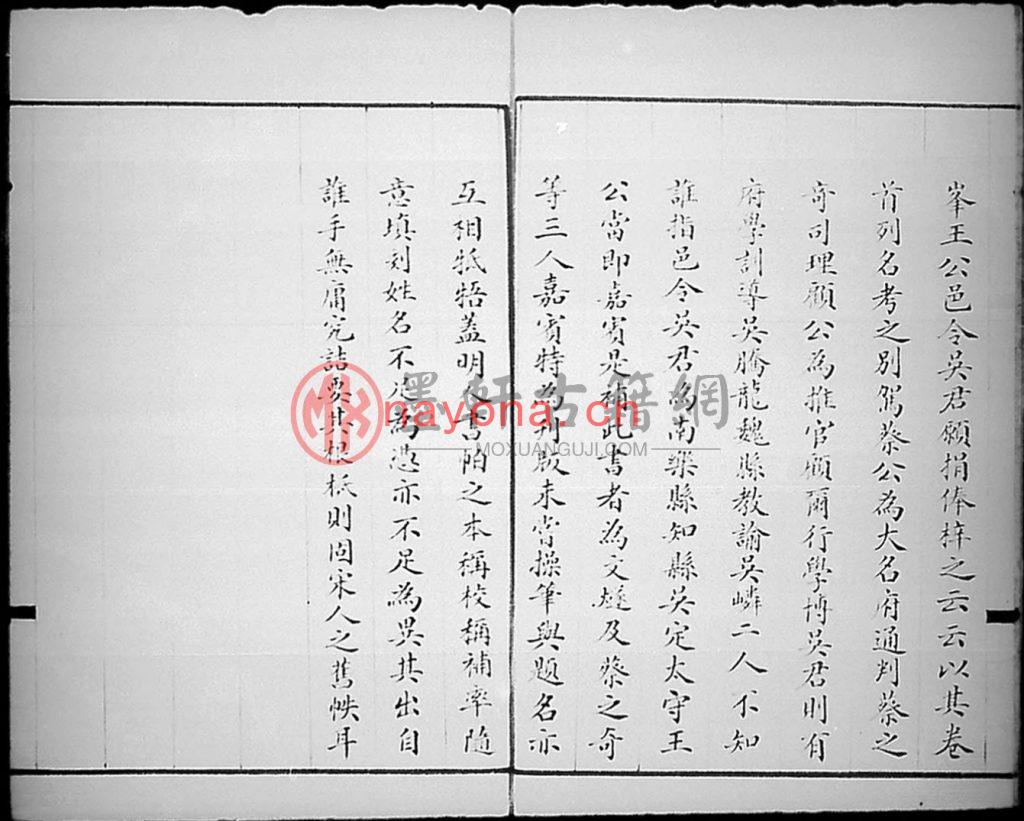 峯王公邑令吳君願捐俸梓之云云以其卷
首列名考之別駕蔡公為大名府通判蔡之
奇司理顧公為推官顧爾行學博吳君則有
府學訓導吳騰龍魏縣教諭吳嶙二人不知
誰指邑令吳君為南樂縣知縣吳定太守王
公當即嘉賓是補此書者為文燧及蔡之奇
等三人嘉賓特為刋版未嘗操筆與題名亦
互相牴牾蓋明人書帕之本稱校稱補率隨
意填刻姓名不足為憑亦不足為異其出自
誰手無庸究詰要其根柢則固宋人之舊帙耳
墨軒古籍網
nayona.cn
MOXUANGUJI.COM